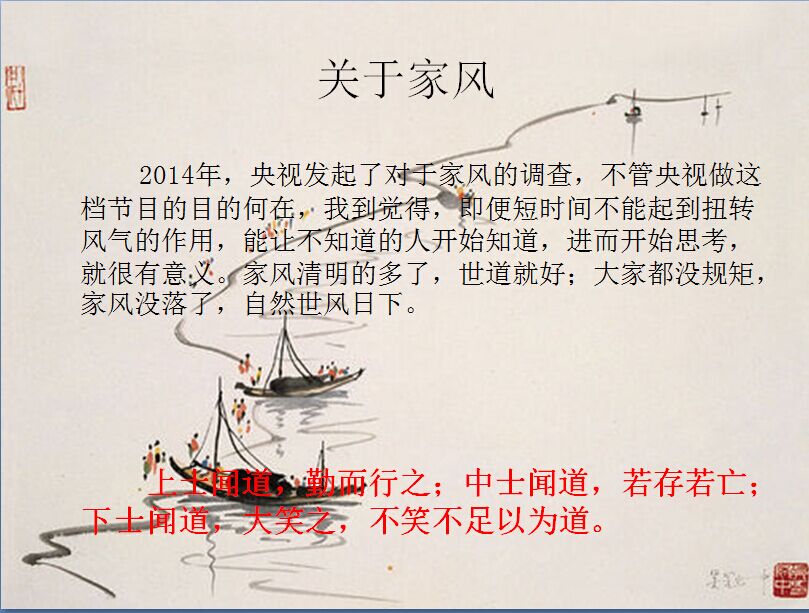 关于家风
2014年，央视发起了对于家风的调查，不管央视做这
档节目的目的何在，我到觉得，即便短时间不能起到扭转
风气的作用，能让不知道的人开始知道，进而开始思考，
就很有意义。家风清明的多了，世道就好；大家都没规矩，
家风没落了，自然世风日下。
上士闻道，勤而行之；中士闻道，若存若亡；
下士闻道，大笑之，不笑不足以为道。